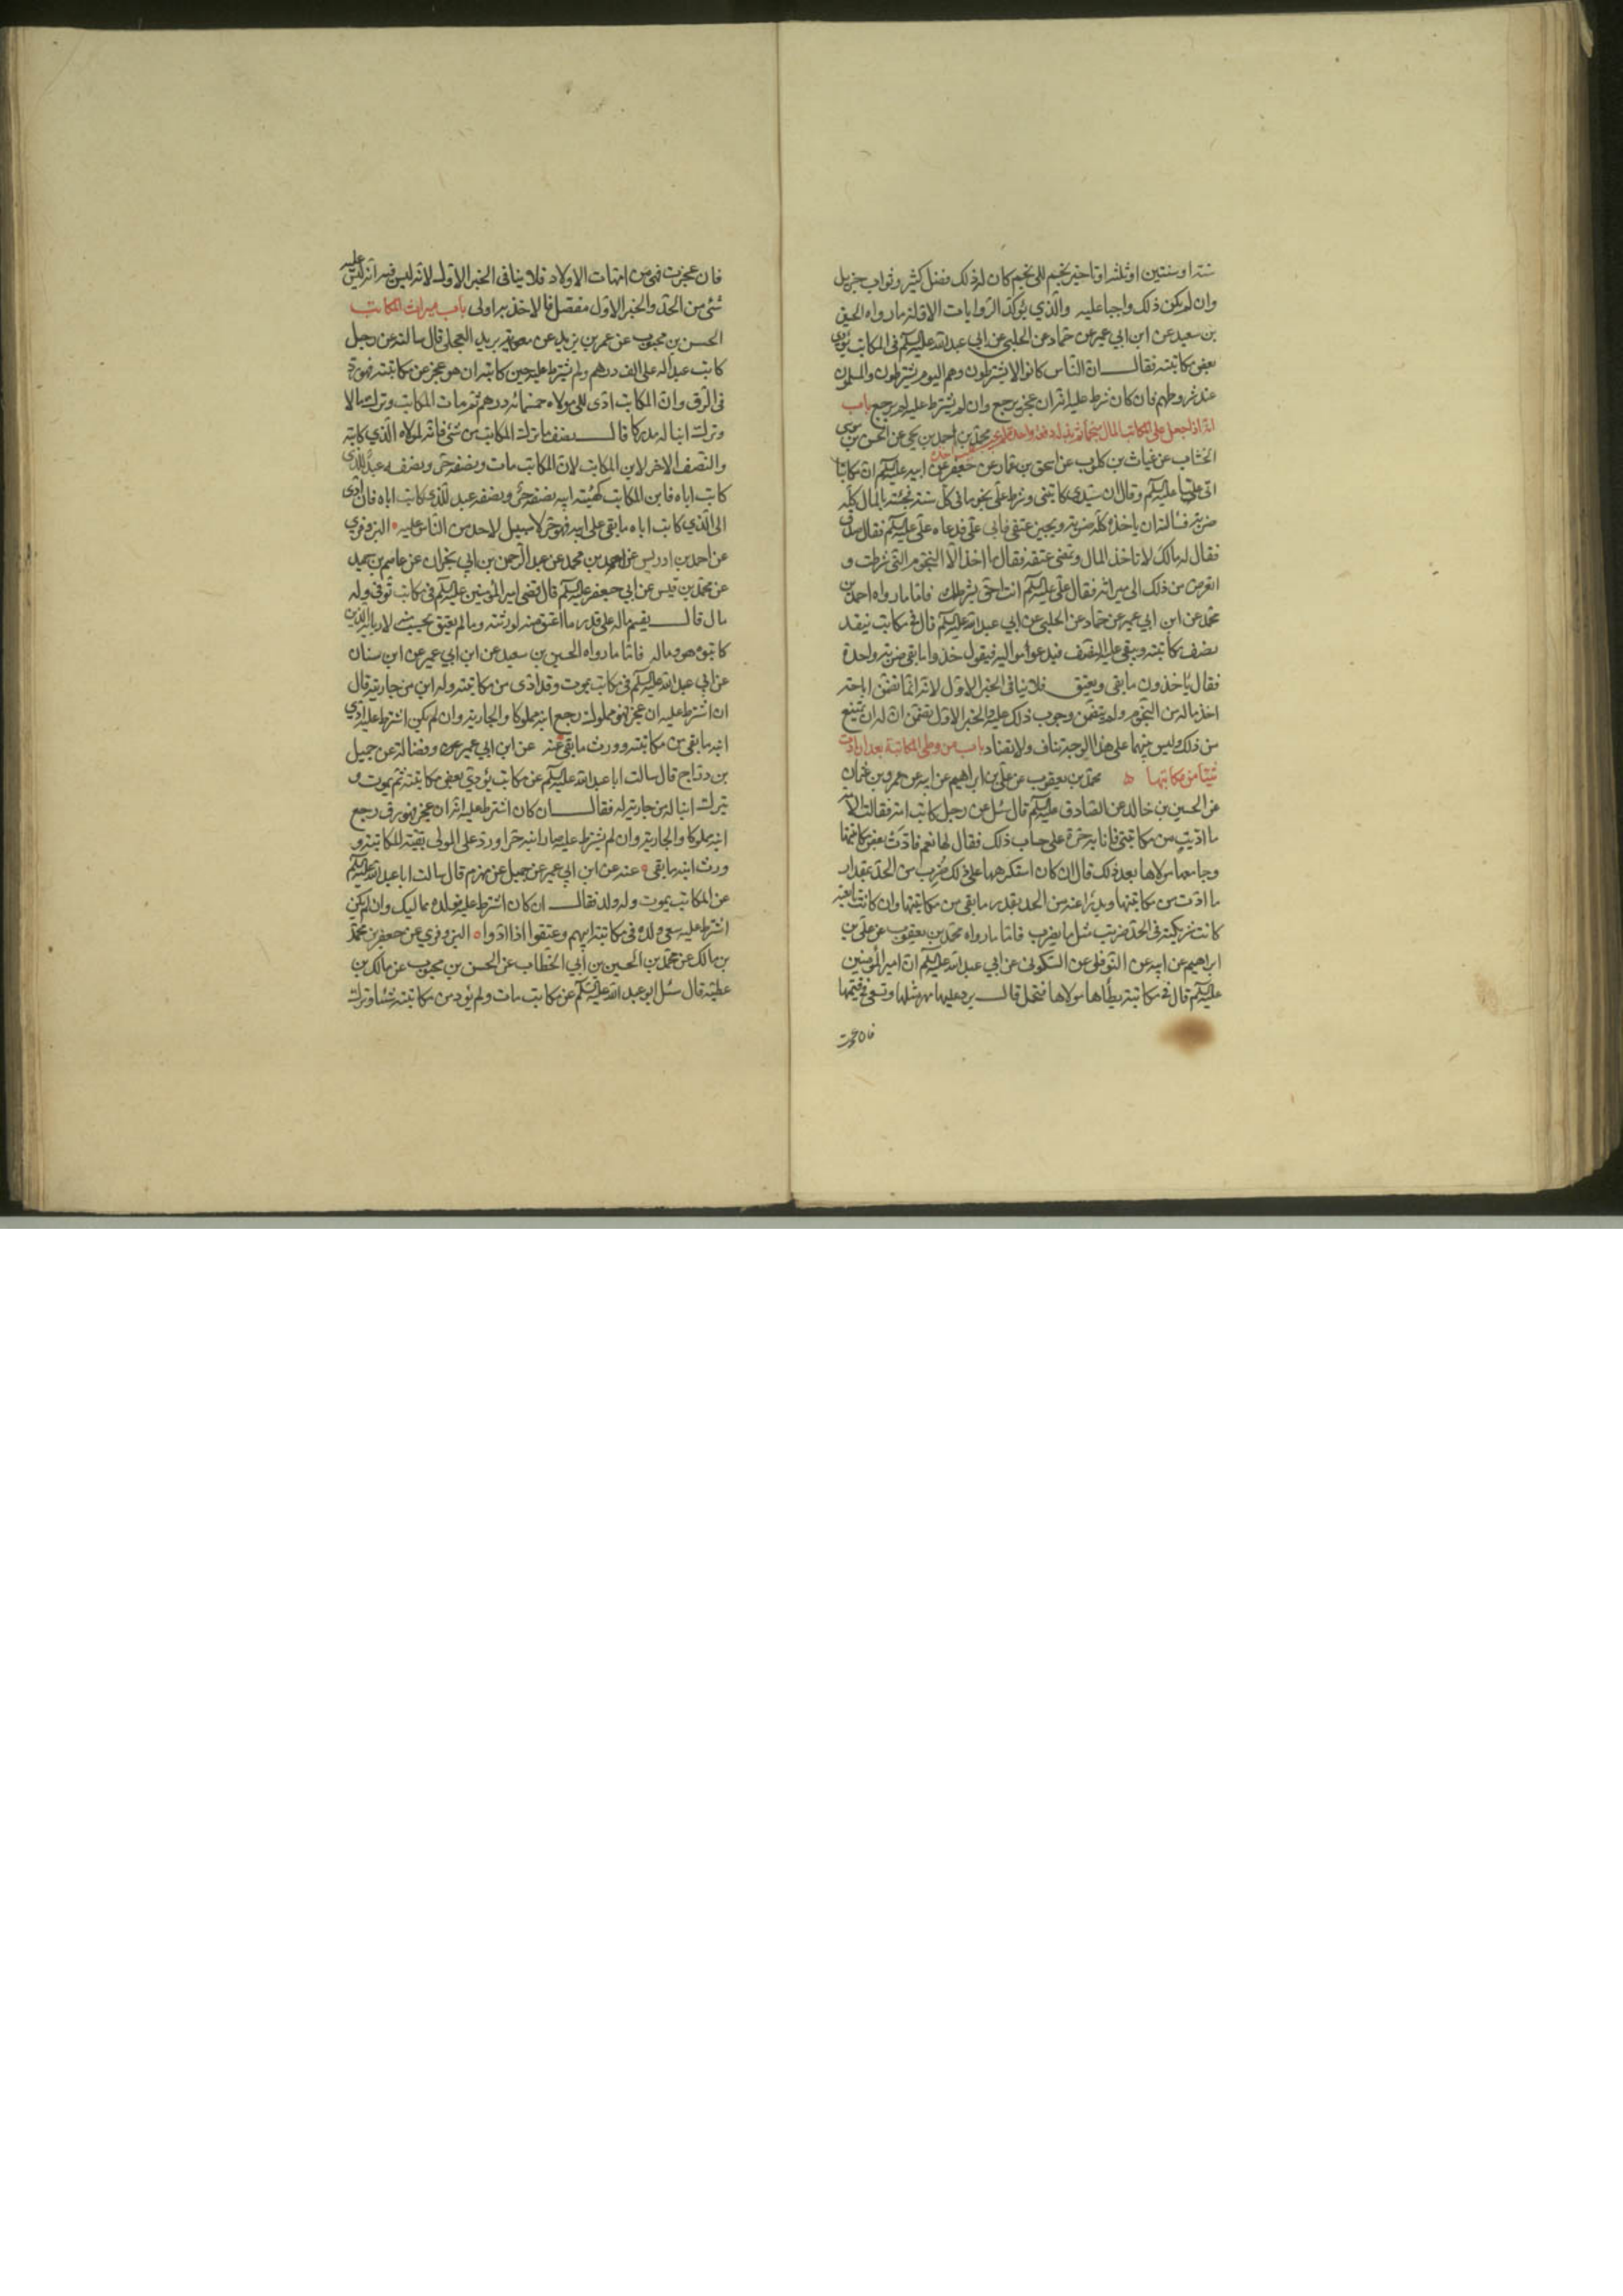 سنة او سنتين او ثلثه او تاخير نجم الى نجم كان له فى ذلك فضل كثير وثواب جزيل
وان لم يكن ذلك واجبا عليه والّذي يؤكّد الرّوايات الاوّلة ما رواه الحسين
بن سعيد عن ابن ابي عمير عن حمّاد عن الحلبي عن ابي عبد الله عليه السلم في المكاتب يؤدى
بعض مكاتبته فقال انّ النّاس كانوا لا يشترطون وهم اليوم يشترطون والمسلمون
عند شروطهم فان كان شرط عليه انّه ان عجز يرجع وان لم يشترط عليه لم يرجع باب
انّه اذا جعل على المكاتب المال منجما ثم بذله دفعة واحدة محمّد بن احمد بن يحيى عن الحسن بن موسى
الخشّاب عن غياث بن كلوب عن اسحق بن عمّار عن جعفر عن ابيه عليه السلم انّ مكاتبا
اتى عليّا عليه السلم وقال ان سيّدى كاتبنى وشرط علىّ نجوما فى كلّ سنة فجئته بالمال كلّه
ضربة فسالته ان ياخذه كلّه ضربة ويجيز عتقى فابى علىّ فدعاه علىّ عليه السلم فقال صدق
فقال له مالك لا تاخذ المال وتمضى عتقه فقال ما اخذ الّا النّجوم الّتى شرطت و
اتعرض من ذلك الى ميراثه فقال علىّ عليه السلم انت احقّ بشرطك فامّا ما رواه احمد بن
محمّد عن ابن ابي عمير عن حمّاد عن الحلبي عن ابي عبد الله عليه السلم قال فى مكاتب ينقد
نصف مكاتبته ويبقى عليه النّصف فيدعو مواليه فيقول خذوا ما بقى ضربة واحدة
فقال ياخذون ما بقى ويعتق فلا ينافى الخبر الاوّل لانّه انّما تضمّن اباحة
اخذ ماله من النّجوم ولم يتضمّن وجوب ذلك عليه والخبر الاوّل تضمّن انّ له ان يمتنع
من ذلك وليس بينهما على هذا الوجه تناف ولا تضاد باب من وطى المكاتبة بعد ان ادّت
شيئا من مكاتبتها محمّد بن يعقوب عن علىّ بن ابراهيم عن ابيه عن عمرو بن عثمان
عن الحسين بن خالد عن الصّادق عليه السلم قال سئل عن رجل كاتب امة فقالت الامة
ما ادّيت من مكاتبتى فانا به حرّة على حساب ذلك فقال لها نعم فادّت بعض مكاتبتها
وجامعها مولاها بعد ذلك قال ان كان استكرهها على ذلك ضُرِب من الحدّ بقدر
ما ادّت من مكاتبتها ويدرا عنه من الحد بقدر ما بقى من مكاتبتها وان كانت تابعته
كانت شريكته فى الحدّ ضربت مثل ما يضرب فامّا ما رواه محمّد بن يعقوب عن علىّ بن
ابراهيم عن ابيه عن النّوفلى عن السّكونى عن ابي عبد الله عليه السلم انّ امير المؤمنين
عليه السلم قال فى مكاتبة يطأها مولاها فتحمل قال يرد عليها مهر مثلها وتسعى فى قيمتها
فان عجزت
فان عجزت فهى من امّهات الاولاد فلا ينافى الخبر الاوّل لانّه ليس فيه انّه ليس عليه
شئ من الحدّ والخبر الاوّل مفصّل فالاخذ به اولى باب ميراث المكاتب
الحسن بن محبوب عن عمر بن يزيد عن بريد العجلى قال سالته عن رجل
كاتب عبدا له على الف درهم ولم يشترط عليه حين كاتبه ان هو عجز عن مكاتبته فهو ردّ
فى الرّق وانّ المكاتب ادّى الى مولاه خمسمائة درهم ثمّ مات المكاتب وترك مالا
وترك ابنا له مدركا قال نصف ما ترك المكاتب من شئ فانّه لمولاه الّذي كاتبه
والنّصف الاخر لابن المكاتب لانّ المكاتب مات ونصفه حرّ ونصفه عبد للّذى
كاتب اباه فابن المكاتب كهيئة ابيه نصفه حرّ ونصفه عبد للّذي كاتب اباه فان ادّى
الى الّذي كاتب اباه ما بقى على ابيه فهو حرّ لا سبيل لاحد من النّاس عليه البزوفرى
عن احمد بن ادريس عن احمد بن محمد عن عبد الرّحمن بن ابي نجران عن عاصم بن حميد
عن محمّد بن قيس عن ابي جعفر عليه السلم قال قضى امير المؤمنين عليه السلم فى مكاتب توفّى وله
مال قال يقسم ماله على قدر ما اعتق منه لورثته وما لم يعتق يحتسب لاربابه الّذين
كاتبوه هو ماله فامّا ما رواه الحسين بن سعيد عن ابن ابي عمير عن ابن سنان
عن ابي عبد الله عليه السلم فى مكاتب يموت وقد ادّى من مكاتبته وله ابن من جاريته قال
ان اشترط عليه ان عجز فهو مملوك رجع ابنه مملوكا والجارية وان لم يكن اشترط عليه ادّى
ابنه ما بقى من مكاتبته وورث ما بقى عنه عن ابن ابي عمير وفضالة عن جميل
بن درّاج قال سالت ابا عبد الله عليه السلم عن مكاتب يؤدّى بعض مكاتبته ثم يموت و
يترك ابنا له من جارية له فقال ان كان اشترط عليه انّه ان عجز فهو رق رجع
ابنه مملوكا والجارية وان لم يشترط عليه صار ابنه حرّا وردّ على المولى بقيّة المكاتبة و
ورث ابنه ما بقى عنه عن ابن ابي عمير عن جميل عن مهزم قال سالت ابا عبد الله عليه السلم
عن المكاتب يموت وله ولد فقال ان كان اشترط عليه فولده مماليك وان لم يكن
اشترط عليه سعى ولده فى مكاتبة ابيهم وعتقوا اذا ادّوا البزوفرى عن جعفر بن محمّد
بن مالك عن محمّد بن الحسين بن أبي الخطّاب عن الحسن بن محبوب عن مالك بن
عطيّه قال سئل ابو عبد الله عليه السلم عن مكاتب مات ولم يؤد من مكاتبته شيئا وترك